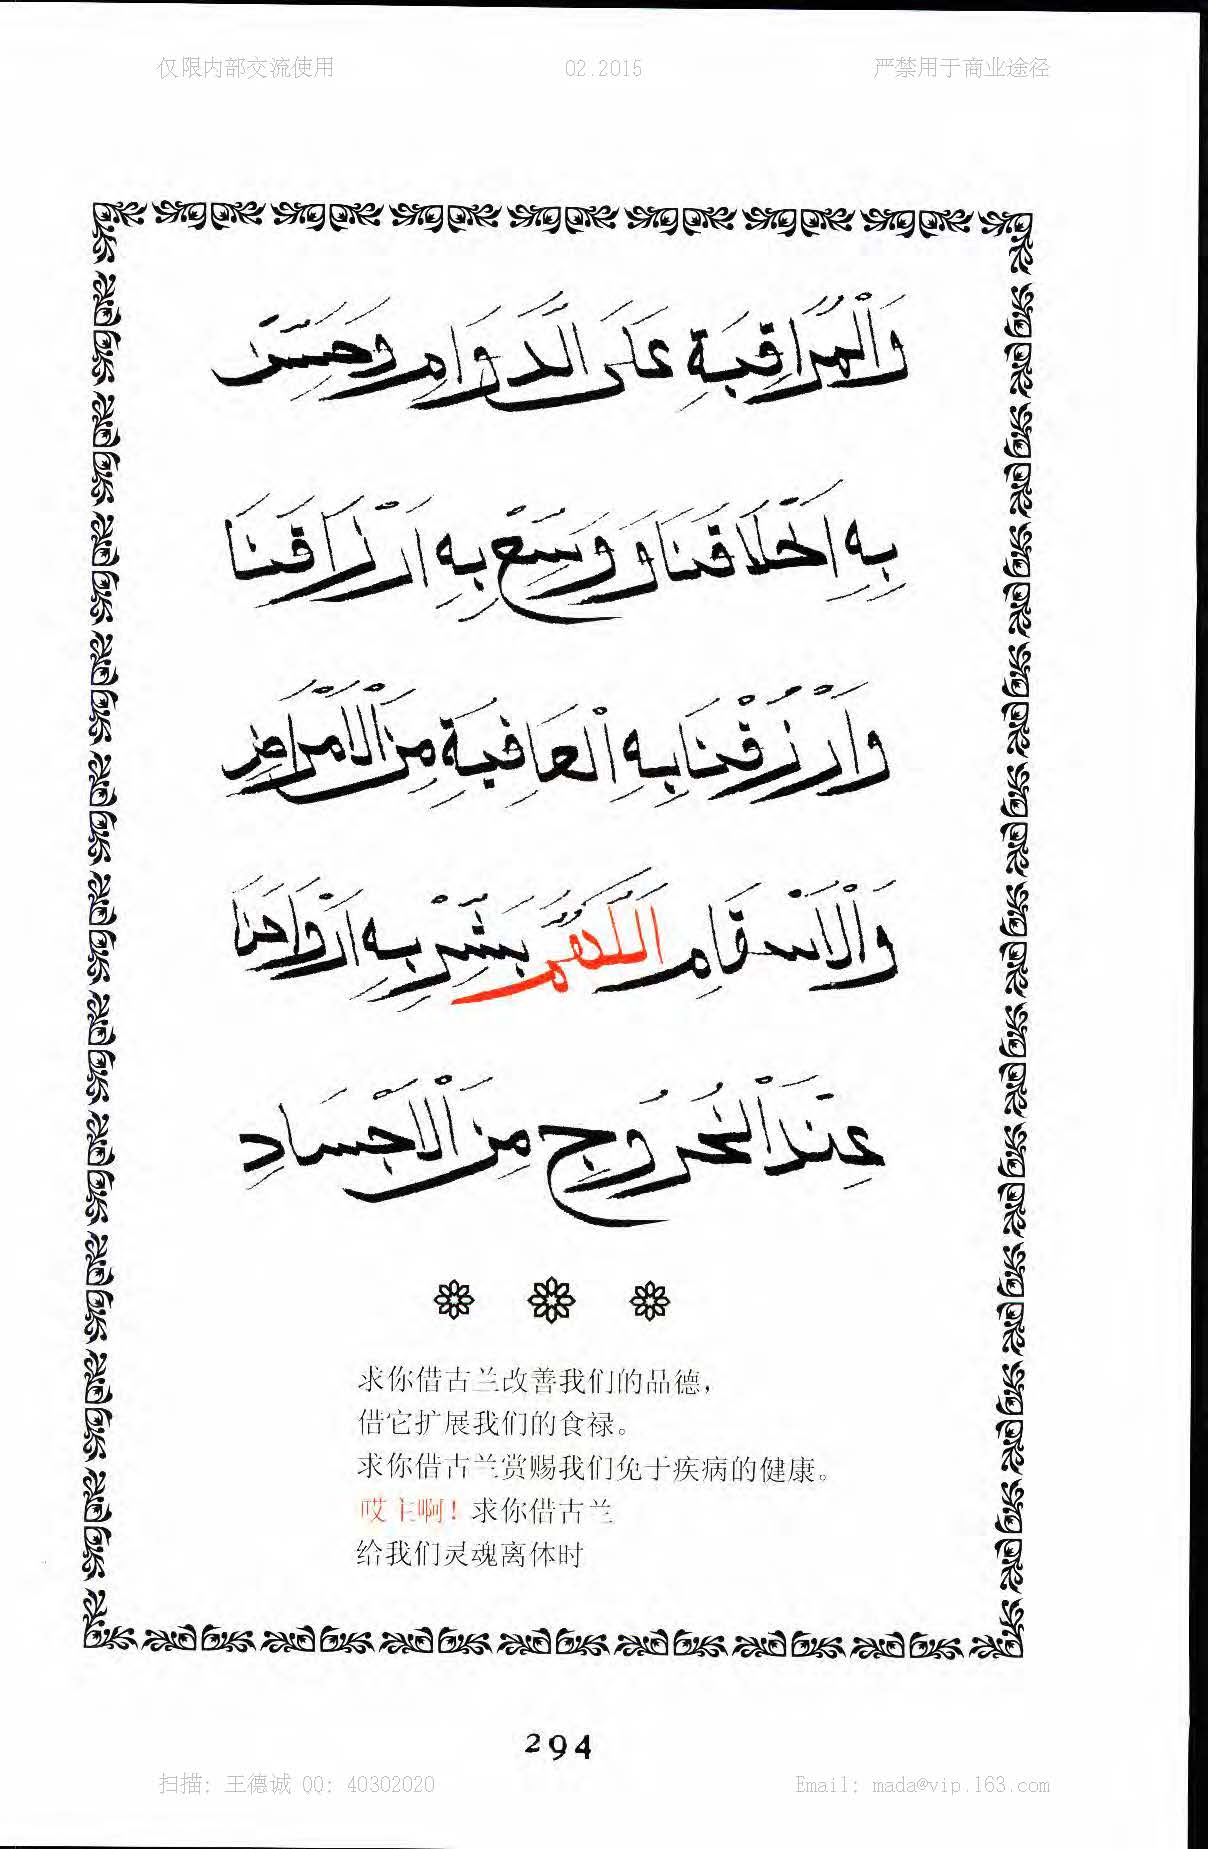 仅限内部交流使用 02.2015 严禁用于商业途径
وَالْمُرَاقِبَةِ عَلَى الدَّوَامِ وَحَسِّنْ
بِهِ اَخْلَاقَنَا وَوَسِّعْ بِهِ اَرْزَاقَنَا
وَارْزُقْنَا بِهِ الْعَافِيَةِ مِنَ الْاَمْرَاضِ
وَالْاَسْقَامِ اَللّٰهُمَّ بَشِّرْ بِهِ اَرْوَاحَنَا
عِنْدَ الْخُرُوجِ مِنَ الْاَجْسَادِ
求你借古兰改善我们的品德，
借它扩展我们的食禄。
求你借古兰赏赐我们免于疾病的健康。
哎主啊！求你借古兰
给我们灵魂离体时
294
扫描: 王德诚 QQ: 40302020 Email: mada@vip.163.com